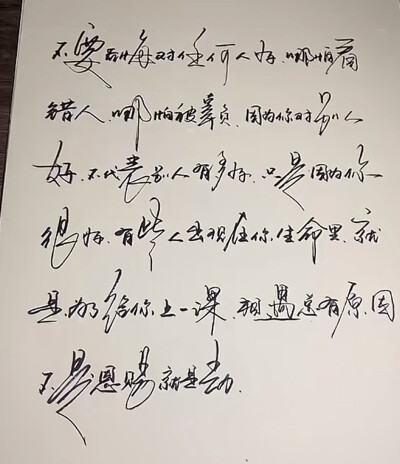 不要后悔对任何人好.哪怕看
错人.哪怕被辜负.因为你对别人
好.不代表别人有多好.只是因为你
很好.有些人出现在你生命里.就
是为了给你上一课.相遇总有原因
不是恩赐就是劫.